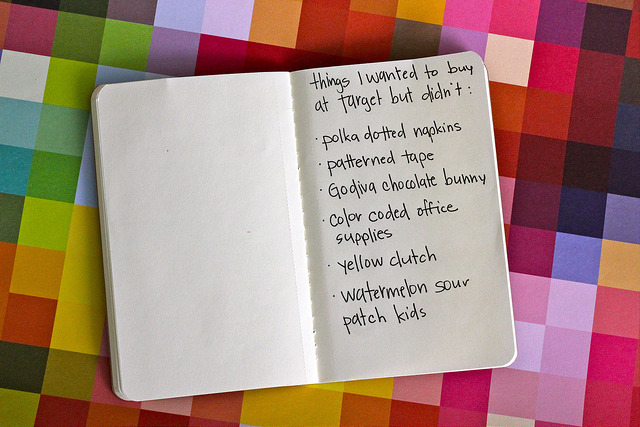 things I wanted to buy
at target but didn't:
· polka dotted napkins
· patterned tape
· Godiva chocolate bunny
· color coded office
supplies
· yellow clutch
· watermelon sour
patch kids